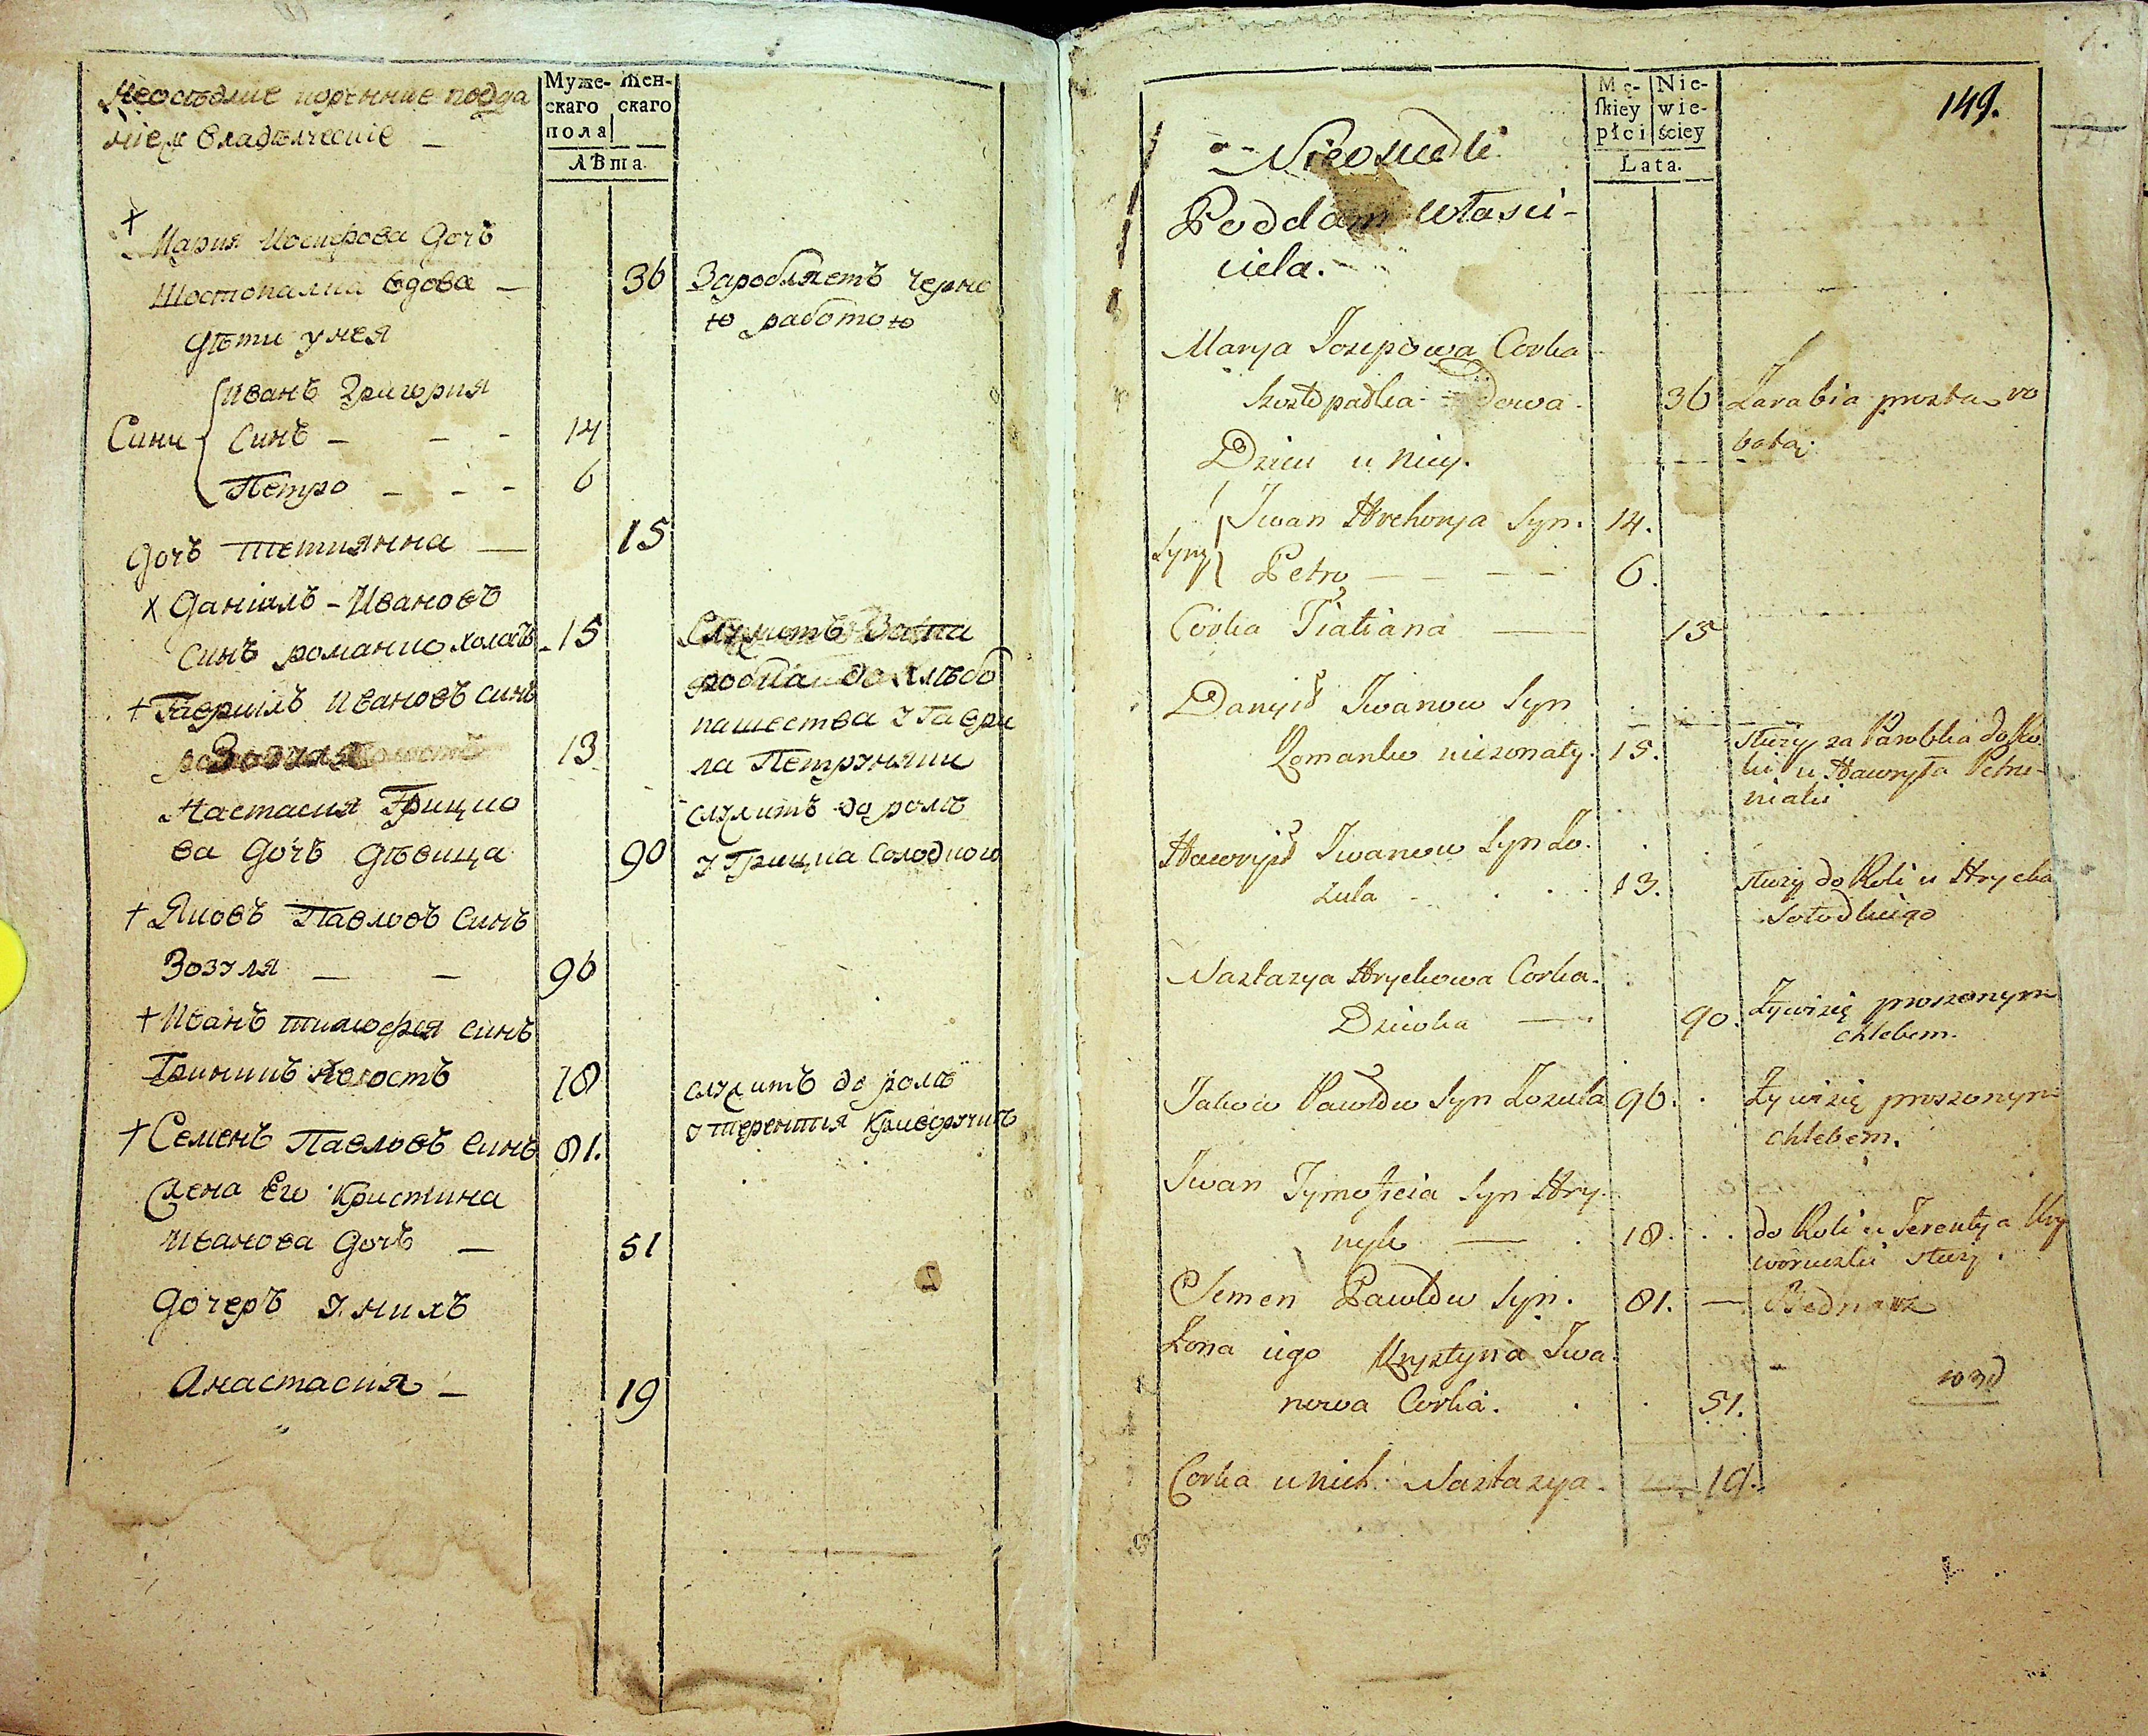 Неоседлие коренние подда
ніех владелческіе —
Муже-
скаго
пола
Жен-
скаго
лѣта.
+
Мария Иосифова Дочъ
Шостопалка вдова — 36 Заробляетъ черно
ю работою
Дѣти у нея
Сини Иванъ Григория
Синъ — — - 14
Петро — - - 6
Дочъ Тетиянна — 15
х Даніилъ - Ивановъ
Синъ романко холостъ 15 Служитъ За па
робка до хлѣбо
+ Гавриилъ Ивановъ Синъ
Зозуля 13
пашества у Гаври
ла Петруняки
Настасия Грицко
ва Дочъ Дѣвица 90
служитъ до ролѣ
у Грицка Солодкого
+ Яковъ Павловъ Синъ
Зозуля — — 96
+ Иванъ тимофея Синъ
Гриникъ холостъ 18 служитъ до ролѣ
у терентия Криворучкѣ
+ Семенъ Павловъ Синъ 81.
Жена Его Кристина
Иванова Дочъ — 51
Дочеръ у нихъ
Анастасия — 19
1.
149.
121
Mę-
skiey
płci
Nie-
wie-
ściey
Lata.
Nieosiedli
Poddani własci-
ciela.
Marya Jozepowa Corka
Szostopadka Wdowa. 36 Zarabia prosta ro
botą.
Dzieci u niey.
Syny Iwan Hrehorya Syn. 14.
Petro — — — — 6.
Corka Tiatiana — 15
Danyił Iwanow Syn
Romanko niezonaty. 15. słuzy za Parobka do Ro
li u Hawryła Petru-
niaki
Hawrył Iwanow Syn Zo.
zula - . . . 13. słuzy do Roli u Hrycka
Sołodkiego
Nastazya Hryckowa Corka.
Dziewka — . 90. Zywi się proszonym
chlebem.
Jakow Pawłow Syn Zozula 96. . Zywi się proszonym
chlebem.
Iwan Tymofieia Syn Hry.
nyk — . 18. . . do Roli u Terentya Kry
woruczki słuzy.
Semen Pawłow Syn. 81. — Bednarz
Zona iego Krystyna Iwa.
nowa Corka. . . 51.
Corka u nich Nastazya. — 19.